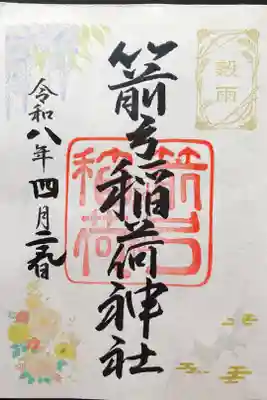 穀雨
箭弓稲荷神社
箭弓
稲荷
令和八年四月